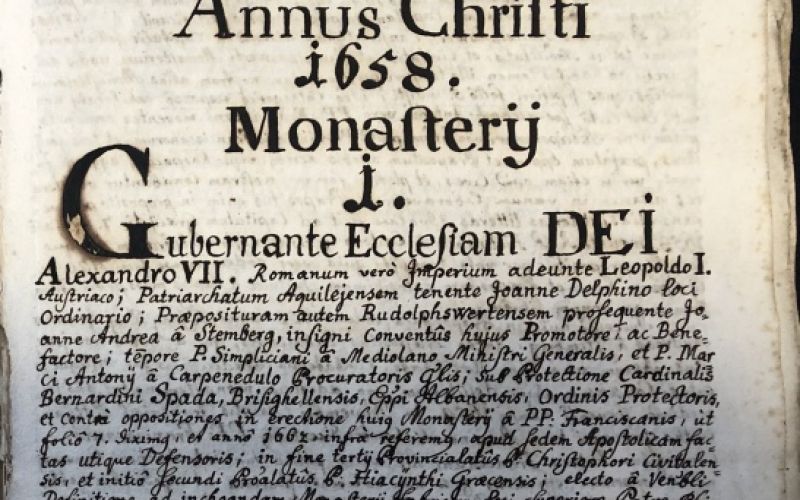 Annus Chriſti
1658.
Monaſterij
1.
Gubernante Eccleſiam DEI
Alexandro VII. Romanum verò Imperium adeunte Leopoldo I.
Austriaco; Patriarchatum Aquilejensem tenente Joanne Delphino loci
Ordinario; Præposituram autem Rudolphswertensem prosequente Jo-
anne Andrea â Stemberg, insigni Conventûs hujus Promotore, ac Bene-
factore; tẽpore P. Simpliciani â Mediolano Ministri Generalis, et P. Mar-
ci Antonij â Carpenedulo Procuratoris Gl̃is; sub Protectione Cardinalis
Bernardini Spada, Brisighellensis, Epp̃i Albanensis, Ordinis Protectoris,
et contra oppositiones in erectione huig Monasterij â PP. Franciscanis, ut
folio 7. diximg, et anno 1662. infra referemg, apud Sedem Apostolicam fac-
tas utique Defensoris; in fine tertij Provincialatûs P. Christophori Civitalen-
sis, et initio secundi P. Hiacynthi Græcensis; electo â
Monasterij